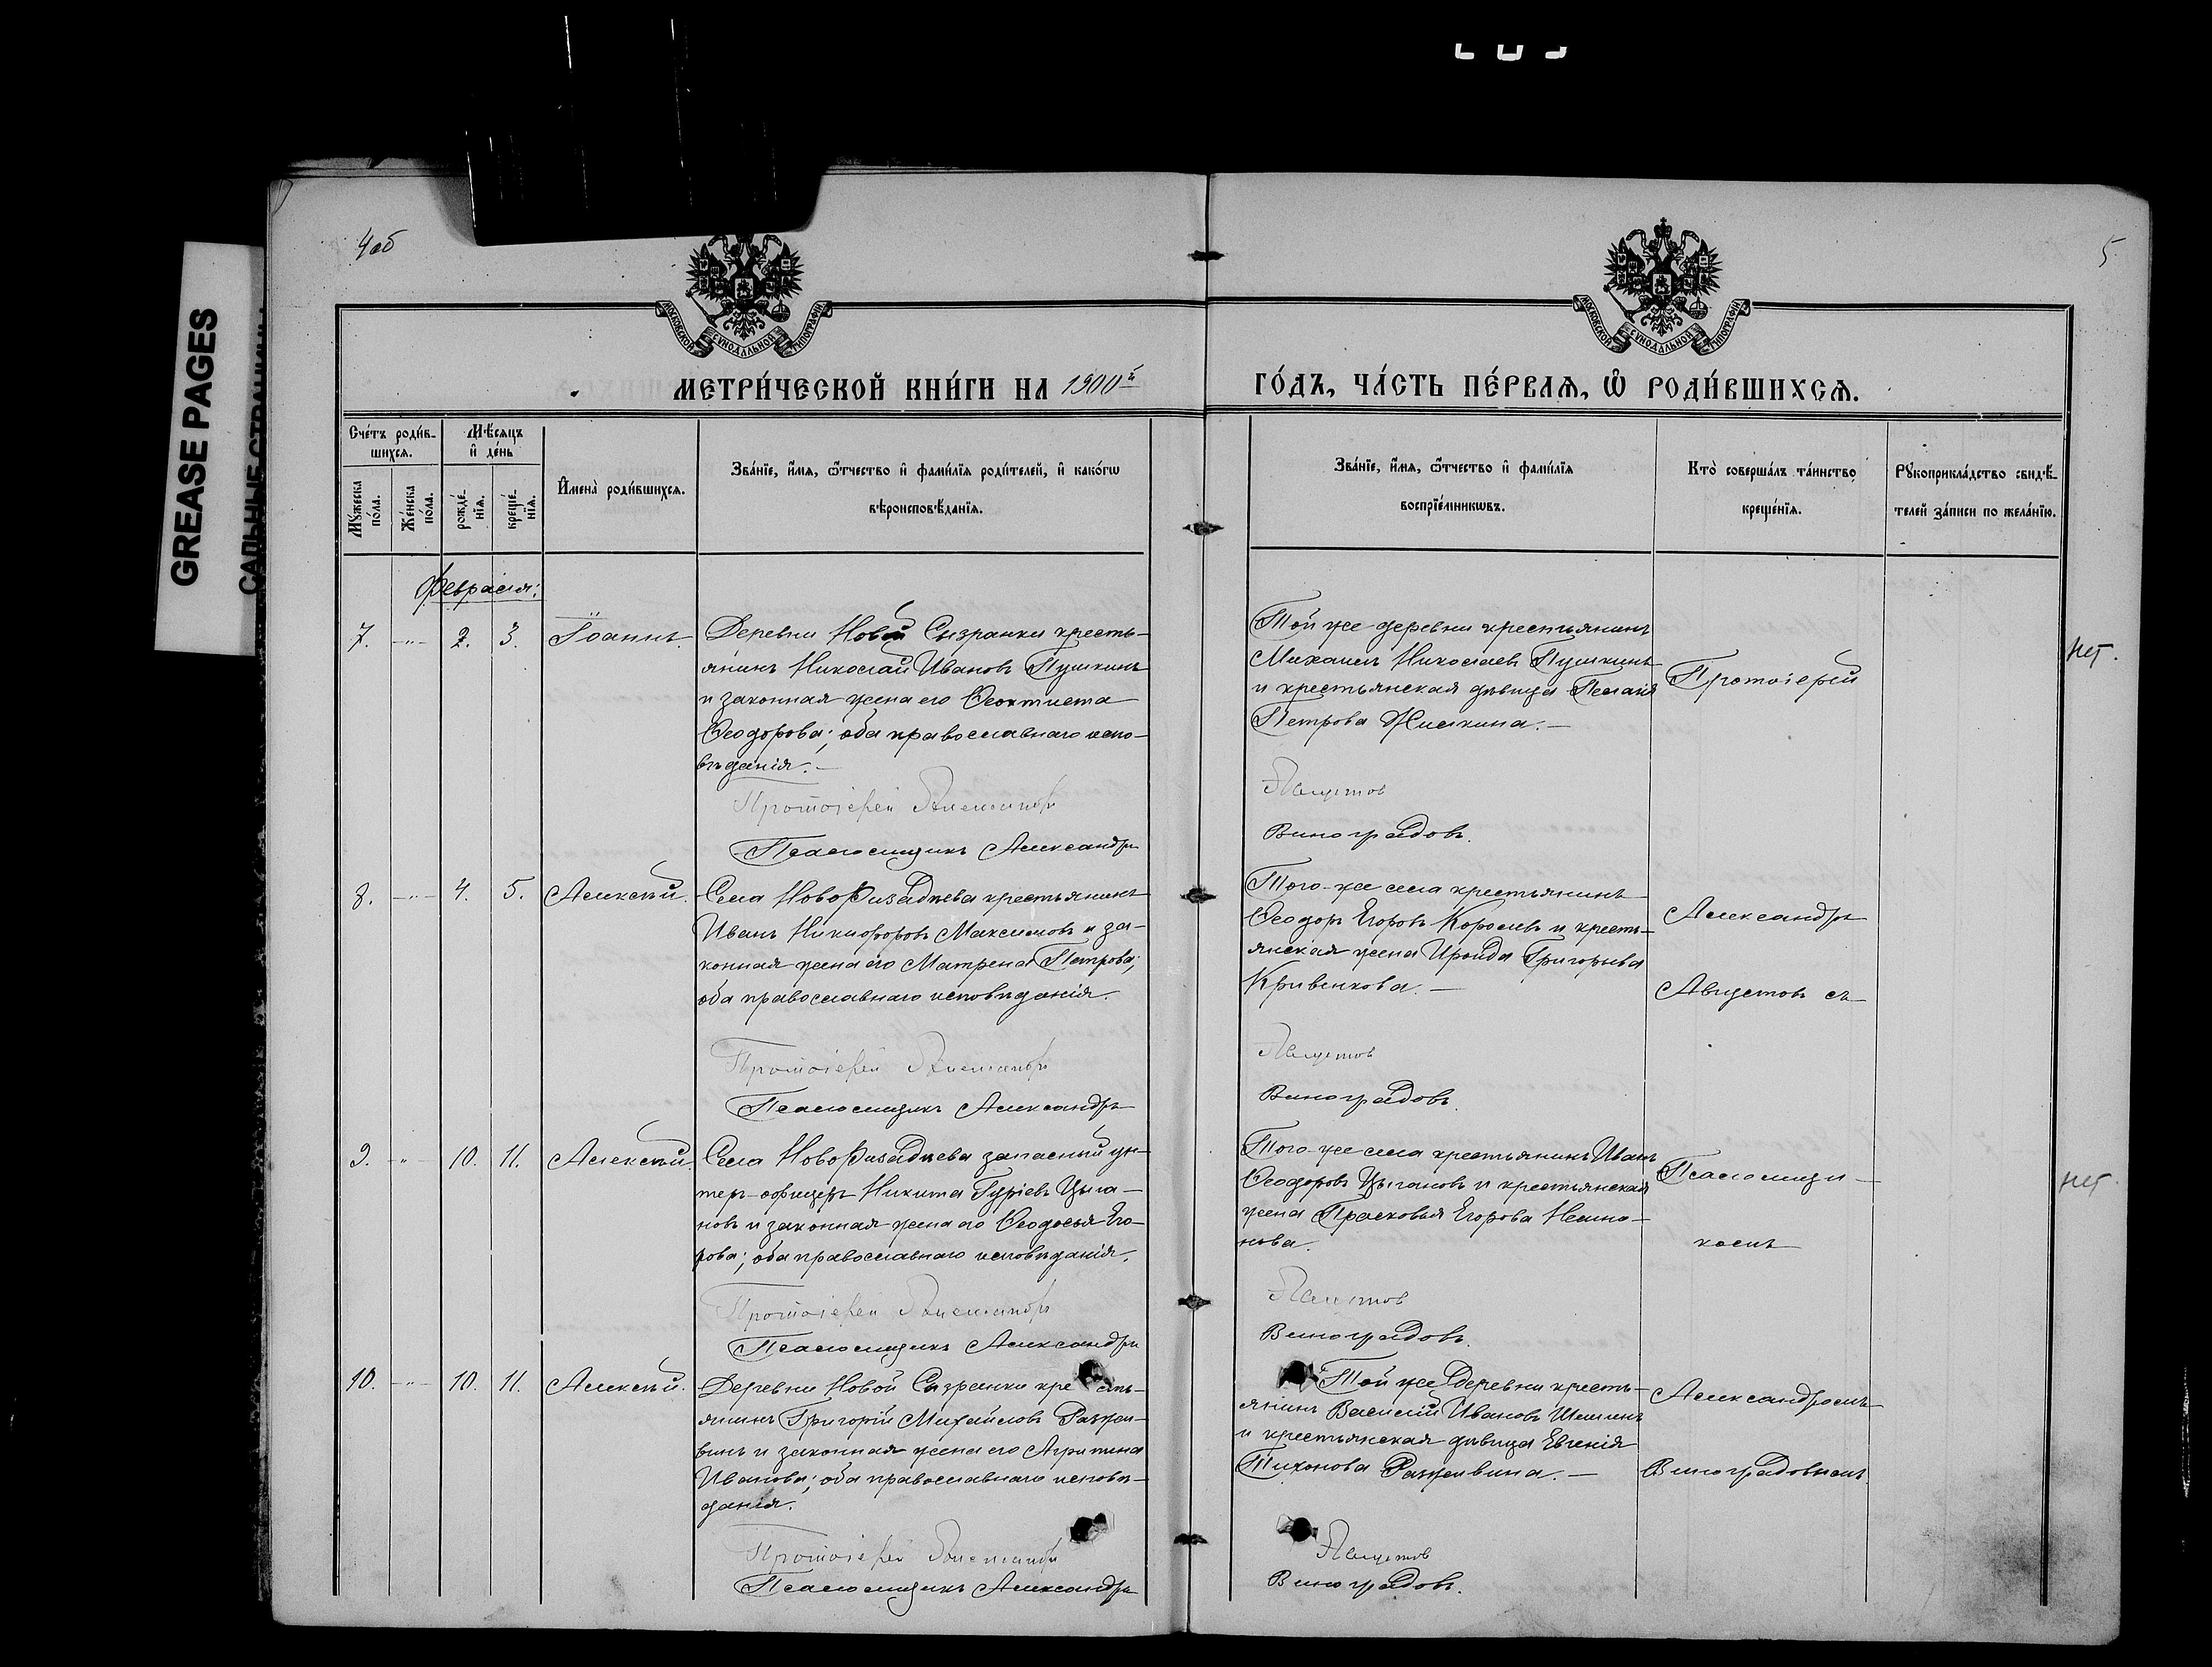 GREASE PAGES
САЛЬНЫЕ СТРАНИЦЫ
4об
5
МОСКОВСКОЙ СѴНОДАЛЬНОЙ ТИПОГРАФІИ
МОСКОВСКОЙ СѴНОДАЛЬНОЙ ТИПОГРАФІИ
МЕТРИ́ЧЕСКОЙ КНИ́ГИ НА 1900й
ГО́ДЪ, ЧА́СТЬ ПЕ́РВАѦ, Ѡ РОДИ́ВШИХСѦ.
Сче́тъ роди́вшихсѧ.
Мꙋ́жеска по́ла.
Же́нска по́ла.
Мѣ́сѧцъ и де́нь
рожде́нїѧ.
креще́нїѧ.
Имена̀ роди́вшихсѧ.
Зва́нїе, и́мѧ, ѻ҆́тчество и фами́лїѧ роди́телей, и како́гѡ
вѣроисповѣ́данїѧ.
Зва́нїе, и́мѧ, ѻ҆́тчество и фами́лїѧ
воспрїе́мникѡвъ.
Кто̀ соверша́лъ та́инство
креще́нїѧ.
Рꙋкоприкла́дство свидѣ́телей за́писи по жела́нїю.
Февраля:
7. -"- 2. 3. Іоаннъ.
Деревни Новой Сызранки кресть-
янинъ Николай Ивановъ Пушкинъ
и законная жена его Ѳеоктиста
Ѳеодорова; оба православнаго испо-
вѣданія.-
Протоіерей Александръ
Псаломщикъ Александръ
Той же деревни крестьянинъ
Михаилъ Николаевъ Пушкинъ
и крестьянская дѣвица Пелагія
Петрова Жилкина.-
Августов
Виноградовъ.
Протоіерей
нет.
8. -"- 4. 5. Алексѣй.
Села Новофизадѣева крестьянинъ
Иванъ Никифоровъ Максимовъ и за-
конная жена его Матрена Петрова;
оба православнаго исповѣданія.
Протоіерей Александръ
Псаломщикъ Александръ
Того-же села крестьянинъ
Ѳеодоръ Егоровъ Королевъ и кресть-
янская жена Ироида Григорьева
Кривенкова.-
Августов
Виноградовъ.
Александръ
Августовъ съ
9. " 10. 11. Алексѣй.
Села Новофизадѣева запасный ун-
теръ-офицеръ Никита Гуріевъ Цыга-
новъ и законная жена его Ѳеодосья Его-
рова; оба православнаго исповѣданія.
Протоіерей Александръ
Псаломщикъ Александръ
Того-же села крестьянинъ Иванъ
Ѳеодоровъ Цыгановъ и крестьянская
жена Прасковья Егорова
нова.
Августов
Виноградовъ.
Псаломщи-
комъ
нет.
10. -"- 10. 11. Алексѣй.
Деревни Новой Сызранки кресть-
янинъ Григорій Михайловъ Разжи-
винъ и законная жена его Агрипина
Иванова; оба православнаго исповѣ-
данія.
Протоіерей Александръ
Псаломщикъ Александръ
Той же деревни кресть-
янинъ Василій Ивановъ
и крестьянская дѣвица Евгенія
Тихонова Разживина.-
Августов
Виноградовъ.
Александромъ
Виноградовымъ.